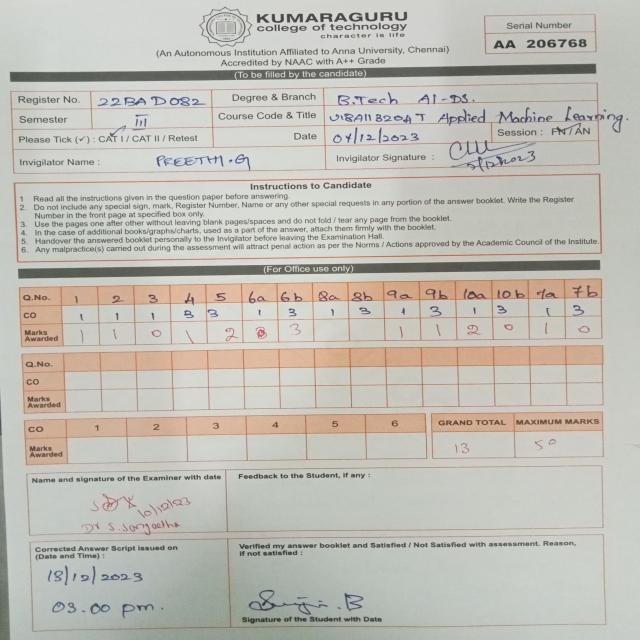 KUMARAGURU
college of technology
character is life
Serial Number
AA 206768
(An Autonomous Institution Affiliated to Anna University, Chennai)
Accredited by NAAC with A++ Grade
(To be filled by the candidate)
Register No. 22BAD082 Degree & Branch B.Tech AI-DS.
Semester III Course Code & Title U18AII3204T Applied Machine Learning.
Please Tick (✓) : CAT I / CAT II / Retest Date 04/12/2023 Session : FN / AN
Invigilator Name : PREETHI.G Invigilator Signature :
Instructions to Candidate
1 Read all the instructions given in the question paper before answering.
2. Do not include any special sign, mark, Register Number, Name or any other special requests in any portion of the answer booklet. Write the Register
Number in the front page at specified box only.
3. Use the pages one after other without leaving blank pages/spaces and do not fold / tear any page from the booklet.
4. In the case of additional books/graphs/charts, used as a part of the answer, attach them firmly with the booklet.
5. Handover the answered booklet personally to the Invigilator before leaving the Examination Hall.
6. Any malpractice(s) carried out during the assessment will attract penal action as per the Norms / Actions approved by the Academic Council of the Institute.
(For Office use only)
Q.No. 1 2 3 4 5 6a 6b 8a 8b 9a 9b 10a 10b 7a 7b
CO 1 1 1 3 3 1 3 1 3 1 3 1 3 1 3
Marks Awarded 1 1 0 1 2 3 1 1 2 0 1 0
Q.No.
CO
Marks Awarded
CO 1 2 3 4 5 6 GRAND TOTAL MAXIMUM MARKS
Marks Awarded 13 50
Name and signature of the Examiner with date Feedback to the Student, if any :
Dr S. Sangeetha
Corrected Answer Script issued on
(Date and Time) :
18/12/2023
03.00 pm.
Verified my answer booklet and Satisfied / Not Satisfied with assessment. Reason,
if not satisfied :
Signature of the Student with Date